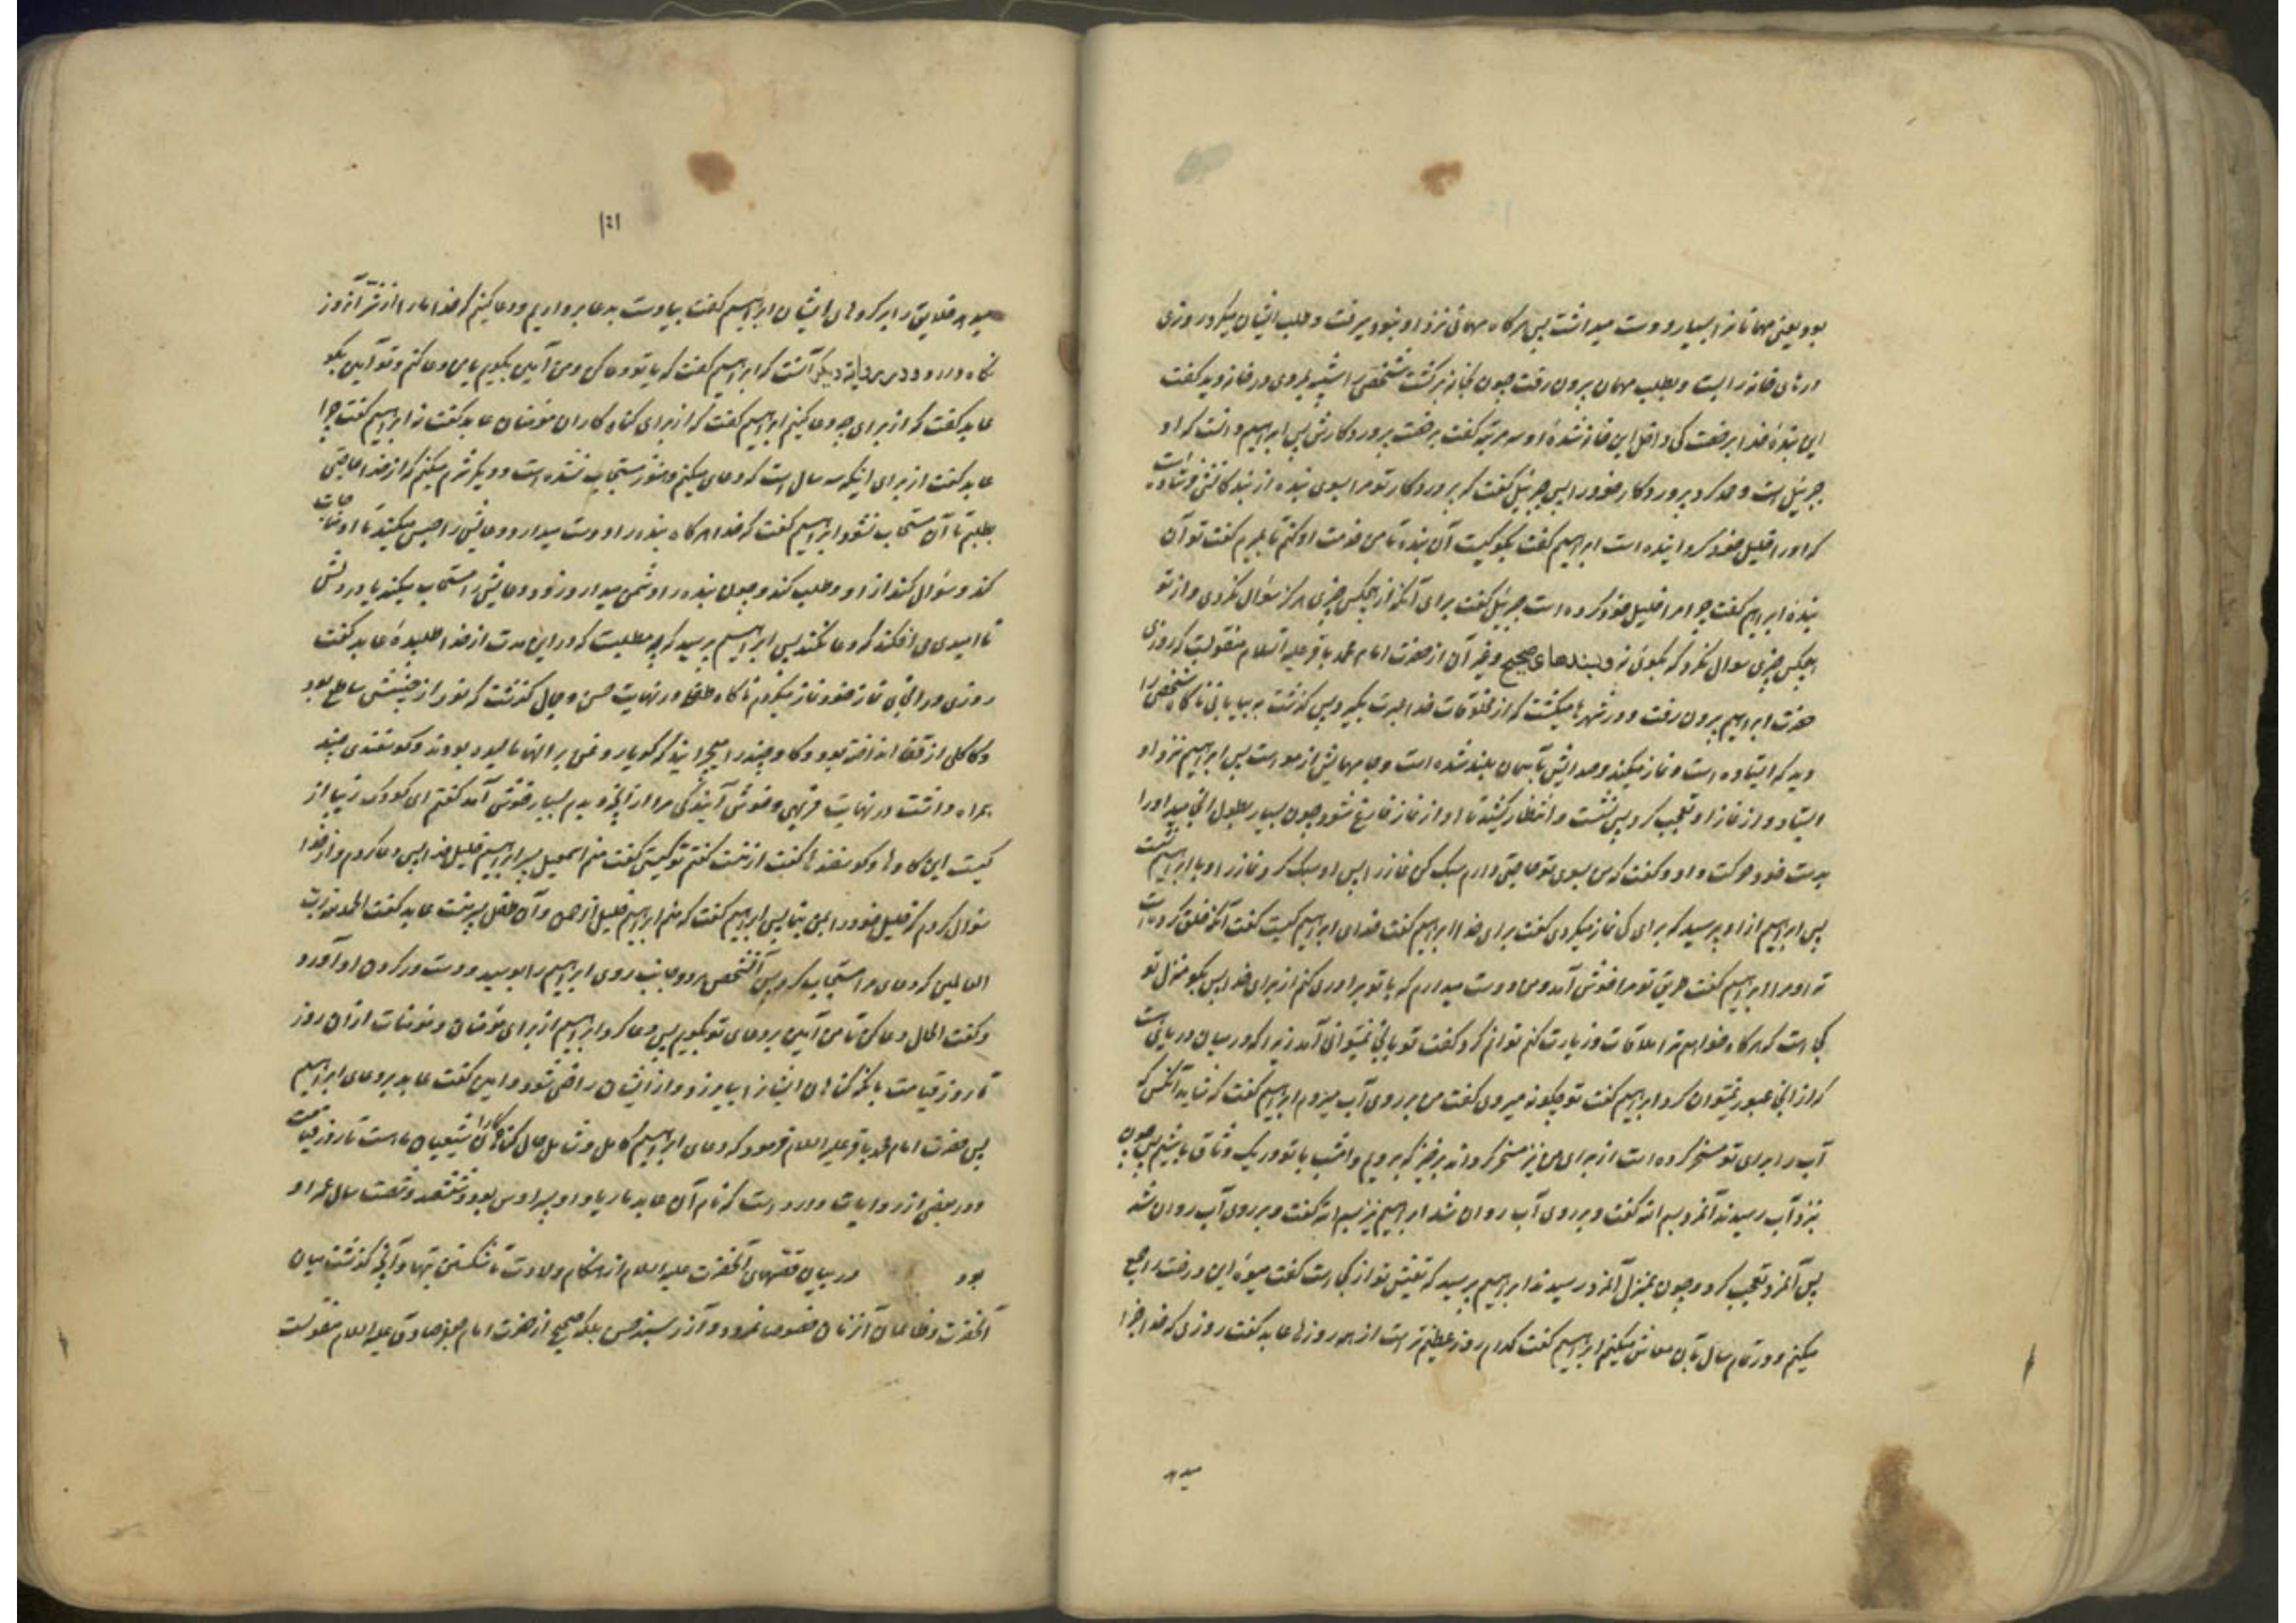 بود یعنی مهمانانرا بسیار دوست میداشت پس هرگاه مهمانی نزد او نبود میرفت و طلب ایشان میکرد روزی
درهای خانه را بست و بطلب مهمان بیرون رفت چون بخانه برگشت شخصی را شبیه بمردی در خانه دید گفت
ای بنده خدا برخصت کی داخل این خانه شدهٔ او سه مرتبه گفت برخصت پروردگارش پس ابراهیم دانست که او
جبرئیل است و حمد کرد پروردگار خود را پس جبرئیل گفت که پروردگار تو مرا بسوی بنده از بندگانش فرستاده است
که او را خلیل خود گردانیده است ابراهیم گفت بگو کیست آن بنده تا من خدمت او کنم تا بمیرم گفت تو آن
بندهٔ ابراهیم گفت چرا مرا خلیل خود کرده است جبرئیل گفت برای آنکه از هیچکس چیزی هرگز سؤال نکردی و از تو
هیچکس چیزی سوال نکرد که بگوئی نه و بسندهای صحیح و غیر آن از حضرت امام محمد باقر علیه السلام منقولست که روزی
حضرت ابراهیم بیرون رفت و در شهرها میگشت که از مخلوقات خدا عبرت بگیرد پس گذشت به بیابانی ناگاه شخصی را
دید که ایستاده است و نماز میکند و صدایش تا آسمان بلند شده است و جامهایش از مو است پس ابراهیم نزد او
ایستاد و از نماز او تعجب کرد پس نشست و انتظار کشید تا او از نماز فارغ شود چون بسیار بطول انجامید او را
بدست خود حرکت داد و گفت که من بسوی تو حاجتی دارم سبک کن نماز را پس او سبک کرد نماز را و با ابراهیم نشست
پس ابراهیم از او پرسید که برای کی نماز میکردی گفت برای خدا ابراهیم گفت خدای ابراهیم کیست گفت آنکه خلق کرده است
تو را و مرا ابراهیم گفت طریق تو مرا خوش آمد و من دوست میدارم که با تو برادری کنم از برای خدا پس بگو منزل تو
کجا است که هرگاه خواهم ترا ملاقات و زیارت کنم توانم کرد گفت تو بانجا نمیتوانی آمد زیرا که در میان دریائی است
که از آنجا عبور نمیتوان کرد ابراهیم گفت تو چگونه میروی گفت من بر روی آب میروم ابراهیم گفت که شاید آنکس که
آب را برای تو مسخر کرده است از برای من نیز مسخر گرداند برخیز که برویم و امشب با تو در یک وثاق باشیم پس چون
بنزد آب رسیدند آنمرد بسم الله گفت و بر روی آب روان شد ابراهیم نیز بسم الله گفت و بر روی آب روان شد
پس آنمرد تعجب کرد و چون بمنزل آنمرد رسیدند ابراهیم پرسید که تعیش تو از کجا است گفت میوه این درخت را جمع
میکنم و در تمام سال بآن معاش میکنم ابراهیم گفت کدام روز عظیم تر است از همه روزها عابد گفت روزی که خدا جزا
میدهد
۱۵۱
میدهد خلایق را بر کردهای ایشان ابراهیم گفت بیا دست بدعا برداریم و دعا کنیم که خدا ما را از شر آنروز
نگاه دارد و در روایة دیگر آنست که ابراهیم گفت که یا تو دعا کن و من آمین بگویم یا من دعا کنم و تو آمین بگو
عابد گفت که از برای چه دعا کنیم ابراهیم گفت که از برای گناه کاران مؤمنان عابد گفت نه ابراهیم گفت چرا
عابد گفت از برای اینکه سه سال است که دعای میکنم و هنوز مستجاب نشده است و دیگر شرم میکنم که از خدا حاجتی
بطلبم تا آن مستجاب نشود ابراهیم گفت که خدا هرگاه بنده را دوست میدارد دعایش را حبس میکند تا او مناجات
کند و سؤال کند از او و طلب کند و چون بنده را دشمن میدارد زود دعایش را مستجاب میکند یا در دلش
ناامیدی می افکند که دعا نکند پس ابراهیم پرسید که چه مطلبست که در این مدت از خدا طلبیدهٔ عابد گفت
روزی در انجای نماز خود نماز میکردم ناگاه طفلی در نهایت حسن و جمال گذشت که نور از جبینش ساطع بود
و کاکلی از قفا انداخته بود و گاو چند را میچرانید که گویا روغن بر آنها مالیده بودند و گوسفندی چند
بهمراه داشت در نهایت فربهی و خوش آیندگی مرا از آنچه دیدم بسیار خوش آمد گفتم ای کودک زیبا از
کیست این گاوها و گوسفندها گفت از منست گفتم تو کیستی گفت منم اسمعیل پسر ابراهیم خلیل خدا پس دعا کردم و از خدا
سؤال کردم که خلیل خود را بمن بنماید پس ابراهیم گفت که منم ابراهیم خلیل الرحمن و آن طفل پسر منست عابد گفت الحمد لله رب
العالمین که دعای مرا مستجاب کرد پس آنشخص هر دو جانب روی ابراهیم را بوسید و دست در گردن او آورد
و گفت الحال دعا کن تا من آمین بر دعای تو بگویم پس دعا کرد ابراهیم از برای مؤمنان و مؤمنات از آن روز
تا روز قیامت بانکه گناهان ایشانرا بیامرزد و از ایشان راضی شود و آمین گفت عابد بر دعای ابراهیم
پس حضرت امام محمد باقر علیه السلام فرمود که دعای ابراهیم کامل و شامل حال گناهکاران شیعیان ما است تا روز قیامت
و در بعضی از روایات وارد است که نام آن عابد ماریا و او پسر اوس بود و ششصد و شصت سال عمر او
بود در بیان قصهای آنحضرت علیه السلام از هنگام ولادت تا شکستن بتها و آنچه گذشت میان
آنحضرت و ظالمان آنزمان خصوصا نمرود و آزر بسند حسن بلکه صحیح از حضرت امام جعفر صادق علیه السلام منقولست